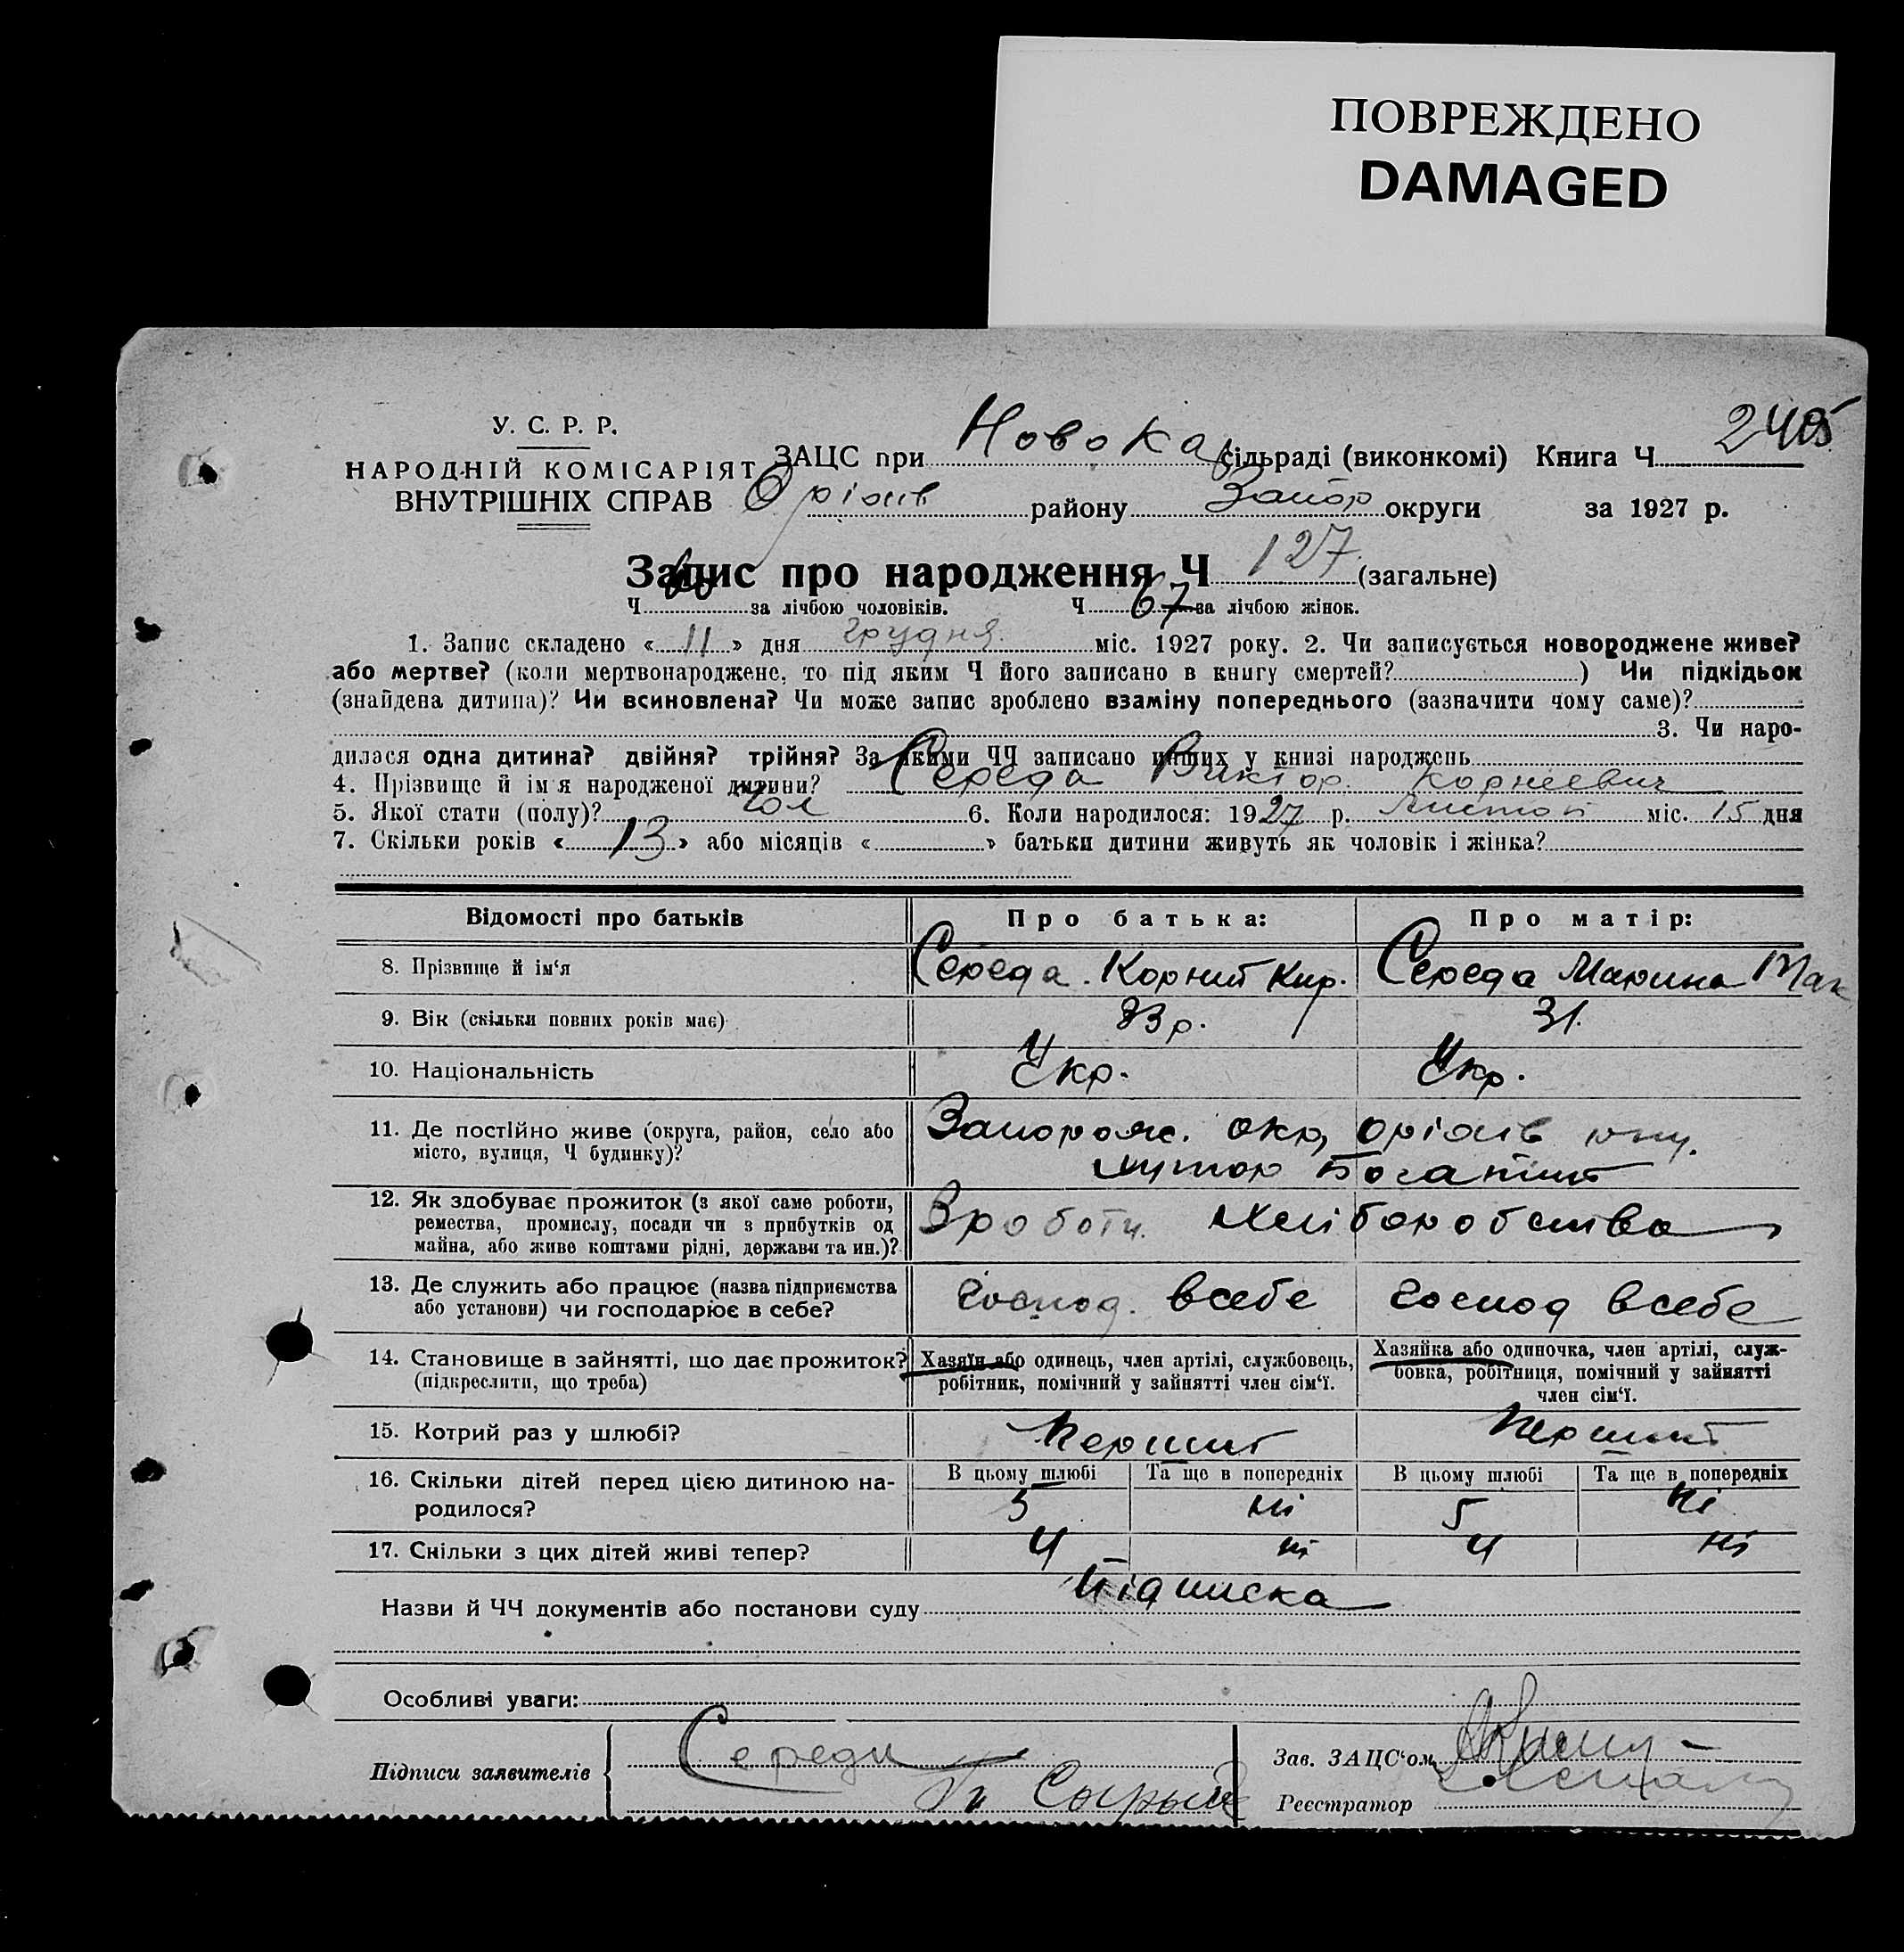 ПОВРЕЖДЕНО
DAMAGED
У. С. Р. Р.
НАРОДНІЙ КОМІСАРІЯТ
ВНУТРІШНІХ СПРАВ
ЗАЦС при Новока сільраді (виконкомі) Книга Ч
Оріхів району Запор округи за 1927 р.
Запис про народження Ч 127 (загальне)
Ч 60 за лічбою чоловіків. Ч 67 за лічбою жінок.
1. Запис складено « 11 » дня грудня міс. 1927 року. 2. Чи записується новороджене живе?
або мертве? (коли мертвонароджене, то під яким Ч його записано в книгу смертей? ) Чи підкідьок
(знайдена дитина)? Чи всиновлена? Чи може запис зроблено взаміну попереднього (зазначити чому саме)?
3. Чи наро-
дилася одна дитина? двійня? трійня? За якими ЧЧ записано инших у книзі народжень
4. Прізвище й ім'я народженої дитини? Середа Виктор Корнеевич
5. Якої стати (полу)? чол 6. Коли народилося: 1927 р. листоп міс. 15 дня
7. Скільки років « 13 » або місяців « » батьки дитини живуть як чоловік і жінка?
Відомості про батьків Про батька: Про матір:
8. Прізвище й ім'я Середа Корний Кир. Середа Марина Мак
9. Вік (скільки повних років має) 33 р. 31.
10. Національність Укр. Укр.
11. Де постійно живе (округа, район, село або місто, вулиця, Ч будинку)? Запорож. окр, оріхів
хутор Богатий
12. Як здобуває прожиток (з якої саме роботи, ремества, промислу, посади чи з прибутків од майна, або живе коштами рідні, держави та ин.)? З роботи хліборобства
13. Де служить або працює (назва підприємства або установи) чи господарює в себе? господ. всебе господ всебе
14. Становище в зайнятті, що дає прожиток? (підкреслити, що треба) Хазяїн або одинець, член артілі, службовець, робітник, помічний у зайнятті член сім'ї. Хазяйка або одиночка, член артілі, служ-бовка, робітниця, помічний у зайнятті член сім'ї.
15. Котрий раз у шлюбі? перший перший
В цьому шлюбі Та ще в попередніх В цьому шлюбі Та ще в попередніх
16. Скільки дітей перед цією дитиною на-родилося? 5 ні 5 ні
17. Скільки з цих дітей живі тепер? 4 ні 4 ні
Назви й ЧЧ документів або постанови суду Підписка
Особливі уваги:
Підписи заявителів Середи
Зав. ЗАЦС'ом
Реєстратор